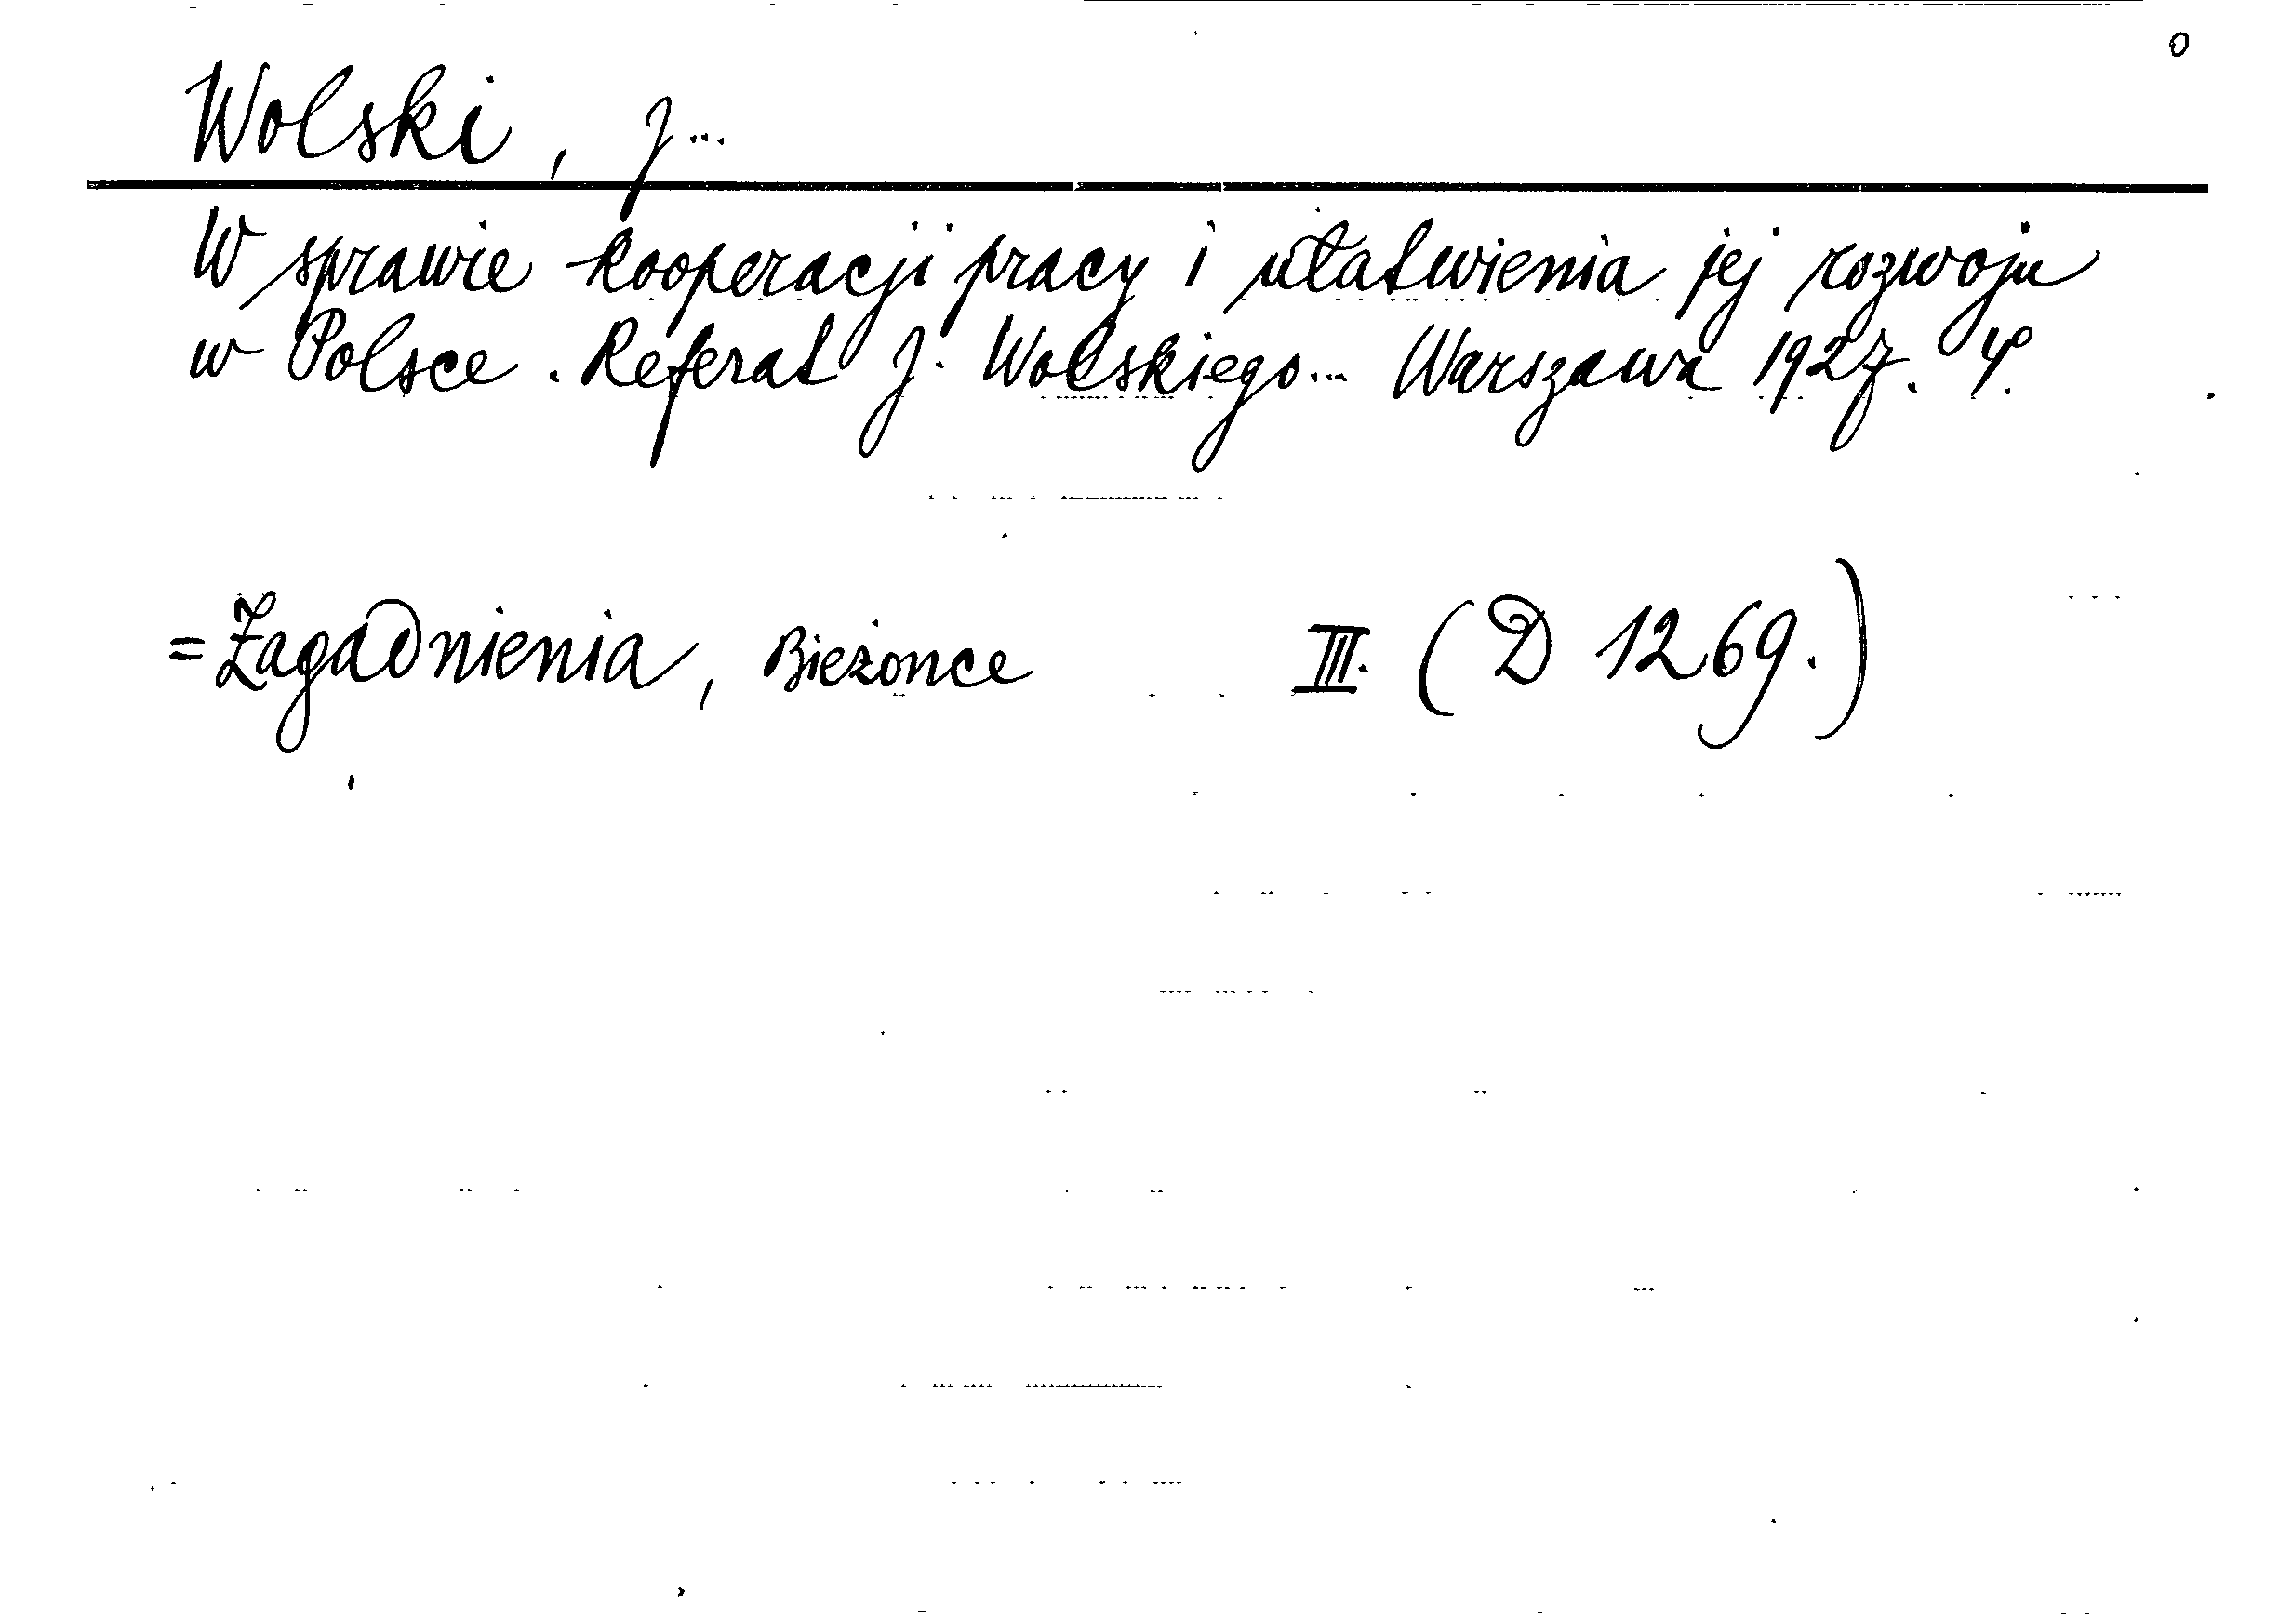 0
Wolski, J...
W sprawie kooperacji pracy i ułatwienia jej rozwoju
w Polsce. Referat J. Wolskiego... Warszawa 1927. 4°.
= Zagadnienia, Bieżonce III. (D 1269.)